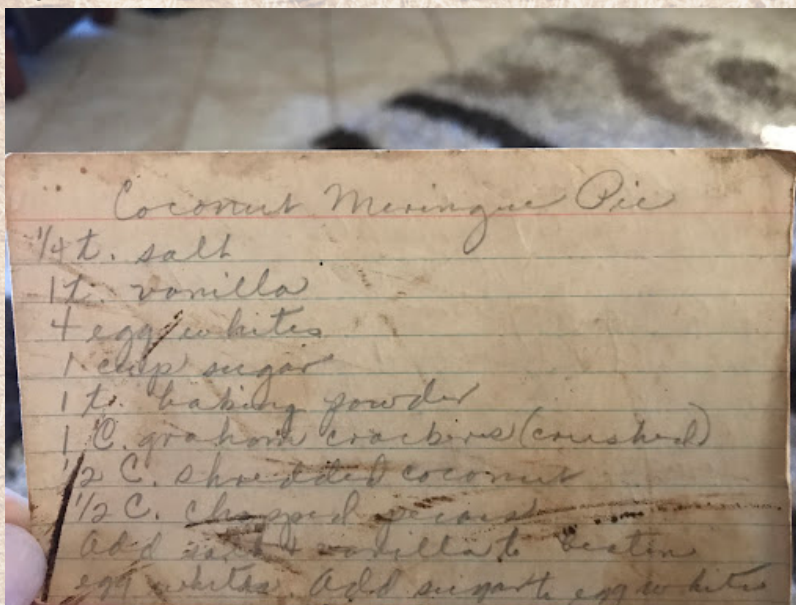 Coconut Meringue Pie
1/4 t. salt
1 t. vanilla
4 egg whites
1 cup sugar
1 t. baking powder
1 C. graham crackers (crushed)
1/2 C. shredded coconut
1/2 C. chopped pecans
Add salt & vanilla to beaten
egg whites. Add sugar to egg whites